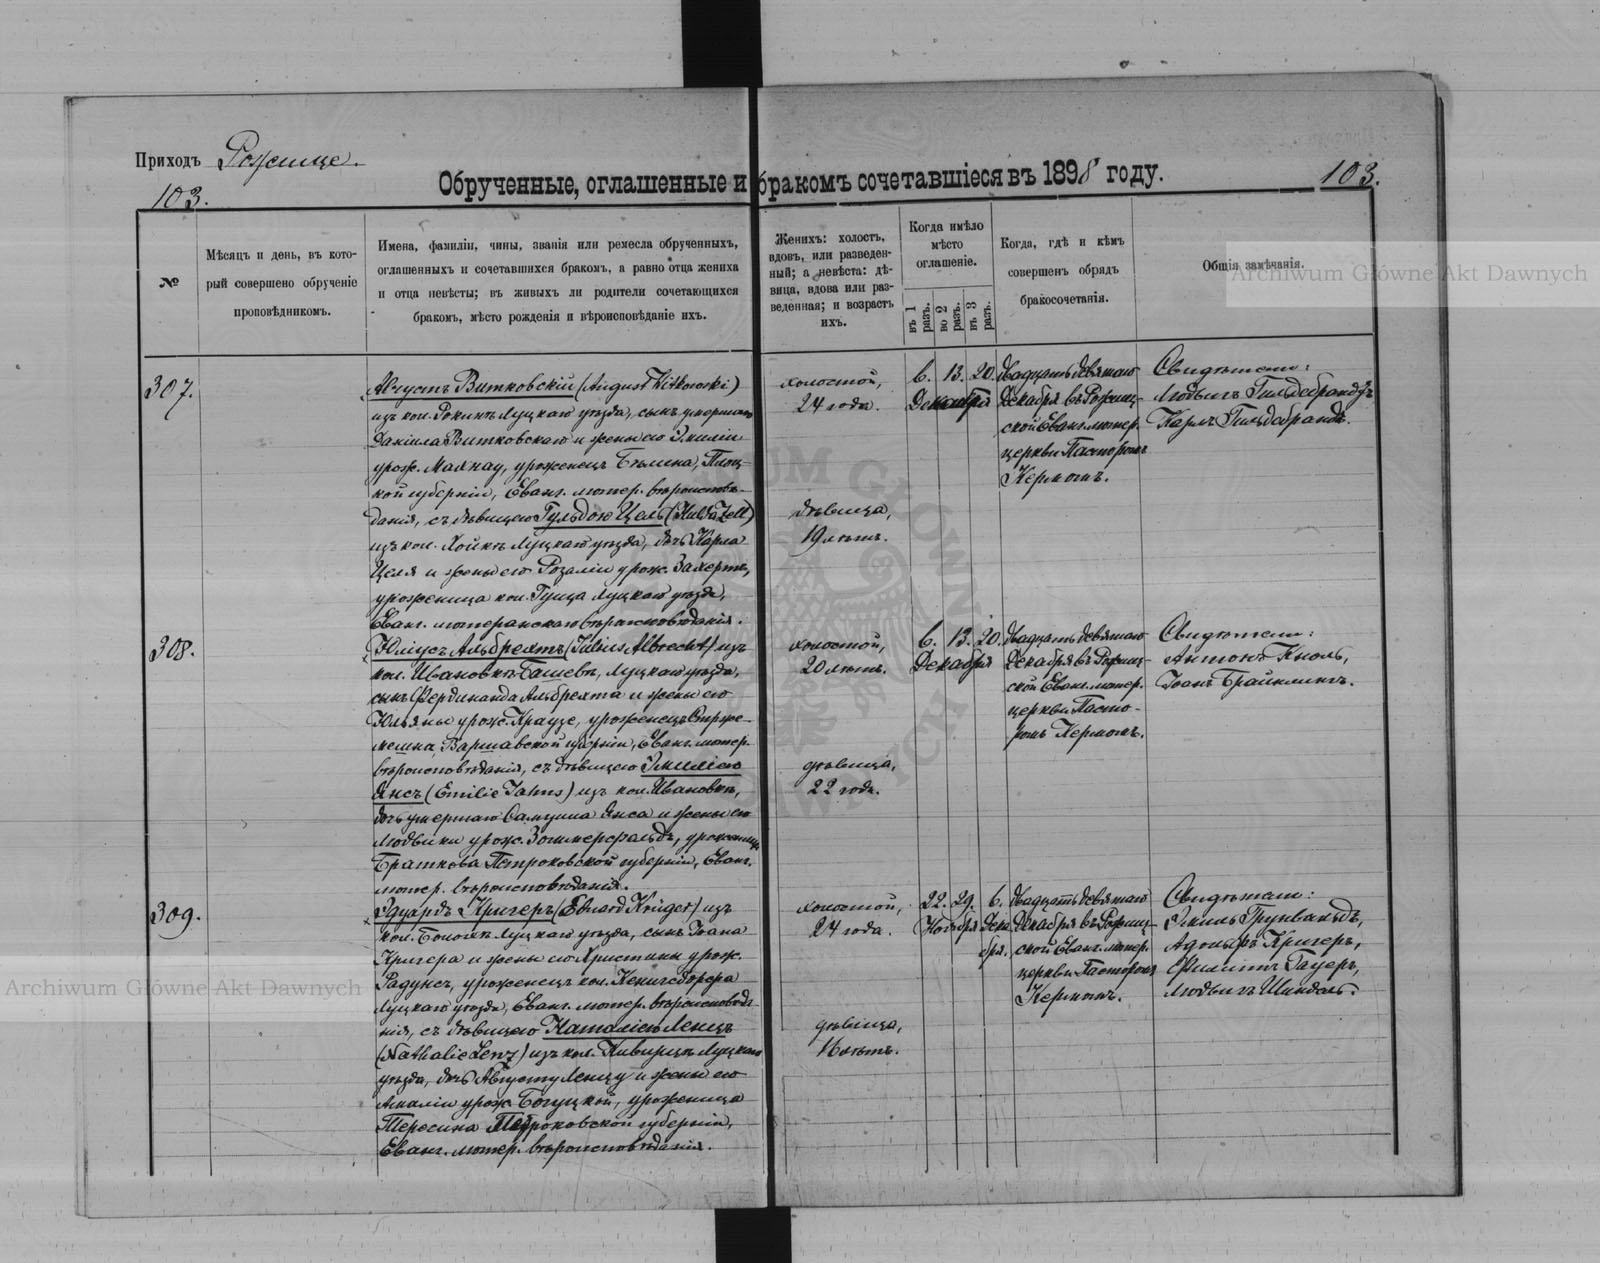 Приходъ Рожище.
103.
Обрученные, оглашенные и бракомъ сочетавшіеся въ 1898 году.
103.
№
Мѣсяцъ и день, въ кото-
рый совершено обрученіе
проповѣдникомъ.
Имена, фамиліи, чины, званія или ремесла обрученныхъ,
оглашенныхъ и сочетавшихся бракомъ, а равно отца жениха
и отца невѣсты; въ живыхъ ли родители сочетающихся
бракомъ, мѣсто рожденія и вѣроисповѣданіе ихъ.
Женихъ: холостъ,
вдовъ, или разведен-
ный; а невѣста: дѣ-
вица, вдова или раз-
веденная; и возрастъ
ихъ.
Когда имѣло
мѣсто
оглашеніе.
въ 1 разъ.
во 2 разъ.
въ 3 разъ.
Когда, гдѣ и кѣмъ
совершенъ обрядъ
бракосочетанія.
Общія замѣчанія.
Archiwum Główne Akt Dawnych
307.
Августъ Витковскій (August Witkowski)
изъ кол. Рокинъ Луцкаго уѣзда, сынъ умершаго
Даніила Витковскаго и жены его Эмиліи
урож. Маянау, уроженецъ Бѣлина, Плоц-
кой губерніи, Еванг. лютер. вѣроисповѣ-
данія, съ дѣвицею Гульдою Цель (Hulda Zell)
изъ кол. Уѣзда, дочь Карла
Целя и жены его Розаліи урож. Захертъ,
уроженица кол. Гуща Луцкаго уѣзда,
Еванг. лютеранскаго вѣроисповѣданія.
холостой,
24 года.
дѣвица,
19 лѣтъ.
6. 13. 20.
Декабря
Двадцать девятаго
Декабря въ Рожищ-
ской Еванг. лютер.
церкви Пасторомъ
Кермомъ.
Свидѣтели:
Людвигъ Гильдебрандъ
Карлъ Гильдебрандъ.
308.
Юліусъ Альбрехтъ (Julius Albrecht) изъ
кол. Ивановкѣ Башевѣ, Луцкаго уѣзда,
сынъ Фердинанда Альбрехта и жены его
Юльяны урож. Краузе, уроженецъ Стрже-
мешна, Варшавской губерніи, Еванг. лютер.
вѣроисповѣданія, съ дѣвицею Эмиліею
Янсъ (Emilie Jahns) изъ кол. Ивановкѣ,
дочь умершаго Самуила Янса и жены его
Людвики урож. Зоммерфельдъ, уроженица
Браткова Петроковской губерніи, Еванг.
лютер. вѣроисповѣданія.
холостой,
20 лѣтъ.
дѣвица,
22 года.
6. 13. 20.
Декабря
Двадцать девятаго
Декабря въ Рожищ-
ской Еванг. лютер.
церкви Пасто-
ромъ Кермомъ.
Свидѣтели:
Антонъ Кноль,
Іоанъ Брайклингъ.
309.
Эдуардъ Кригеръ (Eduard Krüger) изъ
кол. Луцкаго уѣзда, сынъ Іоана
Кригера и жены его Христины урож.
Радунсъ, уроженецъ кол. Кенигсдорфа
Луцкаго уѣзда, Еванг. лютер. вѣроисповѣда-
нія, съ дѣвицею Наталіею Ленцъ
(Nathalie Lenz) изъ кол. Киверцкъ Луцкаго
уѣзда, дочь Августа Ленцу и жены его
Амаліи урож. Богуцкой, уроженица
Тересина Петроковской губерніи,
Еванг. лютер. вѣроисповѣданія.
холостой,
24 года.
дѣвица,
16 лѣтъ.
22. 29. 6.
Ноября Дека-
бря.
Двадцать девятаго
Декабря въ Рожищ-
ской Еванг. лютер.
церкви Пасторомъ
Кермомъ.
Свидѣтели:
Эмиль Грунвальдъ,
Адольфъ Кригеръ,
Филиппъ Гауеръ,
Людвигъ Шиндель.
Archiwum Główne Akt Dawnych